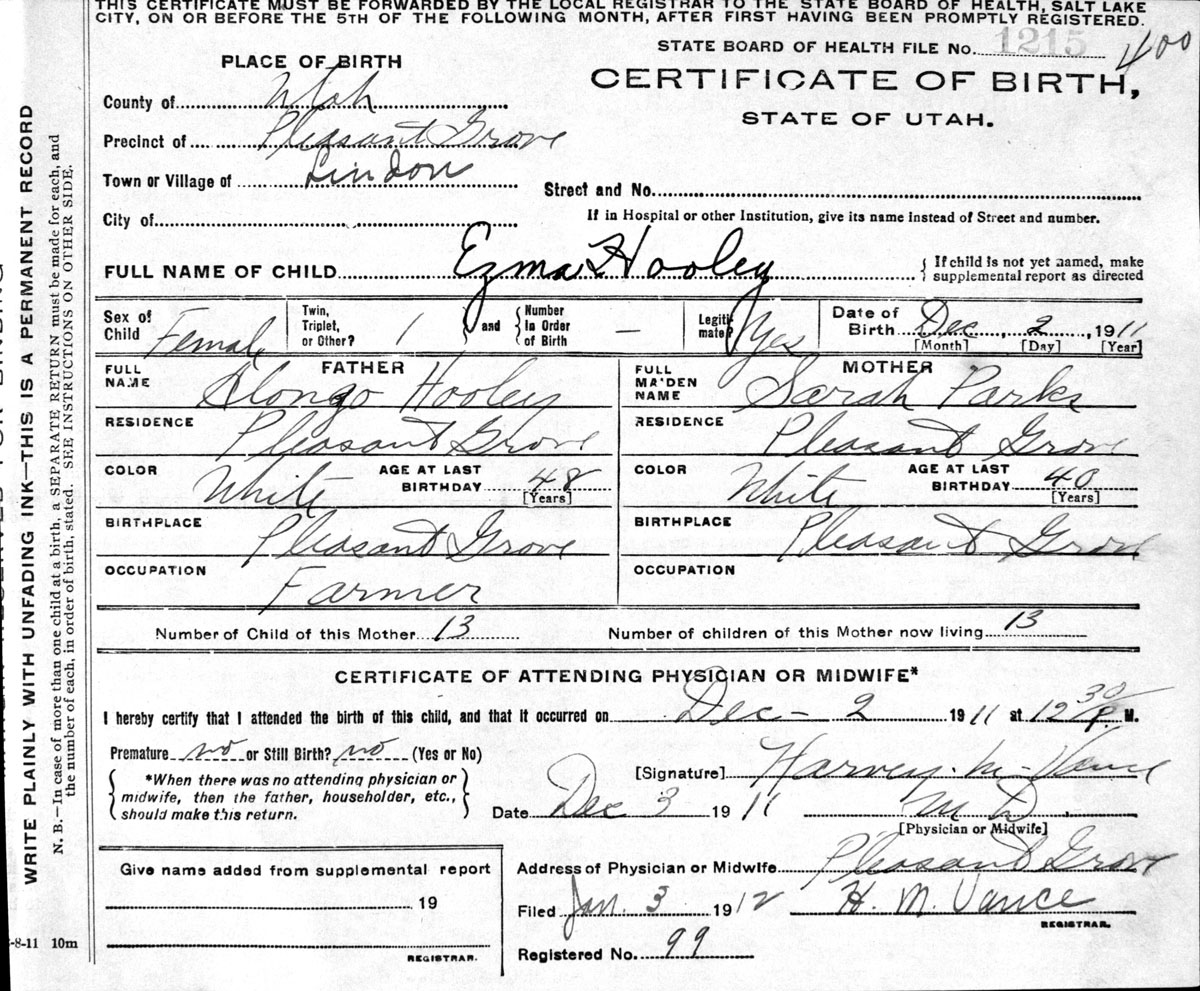 THIS CERTIFICATE MUST BE FORWARDED BY THE LOCAL REGISTRAR TO THE STATE BOARD OF HEALTH, SALT LAKE
CITY, ON OR BEFORE THE 5TH OF THE FOLLOWING MONTH, AFTER FIRST HAVING BEEN PROMPTLY REGISTERED.
STATE BOARD OF HEALTH FILE No. 1215 400
PLACE OF BIRTH
CERTIFICATE OF BIRTH,
STATE OF UTAH.
County of Utah
Precinct of Pleasant Grove
Town or Village of Lindon
Street and No.
City of
If in Hospital or other Institution, give its name instead of Street and number.
FULL NAME OF CHILD Ezma Hooley
If child is not yet named, make
supplemental report as directed
Sex of Child Female
Twin, Triplet, or Other? 1
and
Number In Order of Birth –
Legitimate? Yes
Date of Birth Dec, 2, 1911
[Month] [Day] [Year]
FATHER
FULL NAME Alonzo Hooley
RESIDENCE Pleasant Grove
COLOR White
AGE AT LAST BIRTHDAY 48
[Years]
BIRTHPLACE Pleasant Grove
OCCUPATION Farmer
MOTHER
FULL MAIDEN NAME Sarah Parks
RESIDENCE Pleasant Grove
COLOR White
AGE AT LAST BIRTHDAY 40
[Years]
BIRTHPLACE Pleasant Grove
OCCUPATION
Number of Child of this Mother 13
Number of children of this Mother now living 13
CERTIFICATE OF ATTENDING PHYSICIAN OR MIDWIFE*
I hereby certify that I attended the birth of this child, and that it occurred on Dec – 2 1911 at 12 30 P. M.
Premature no or Still Birth? no (Yes or No)
*When there was no attending physician or
midwife, then the father, householder, etc.,
should make this return.
[Signature] Harvey. M – Vance
Date Dec 3 1911 M D.
[Physician or Midwife]
Give name added from supplemental report
19
REGISTRAR.
Address of Physician or Midwife Pleasant Grove
Filed Jan. 3 1912 H. M. Vance
REGISTRAR.
Registered No. 99
-8-11 10m
WRITE PLAINLY WITH UNFADING INK—THIS IS A PERMANENT RECORD
N. B.—In case of more than one child at a birth, a SEPARATE RETURN must be made for each, and
the number of each, in order of birth, stated. SEE INSTRUCTIONS ON OTHER SIDE.